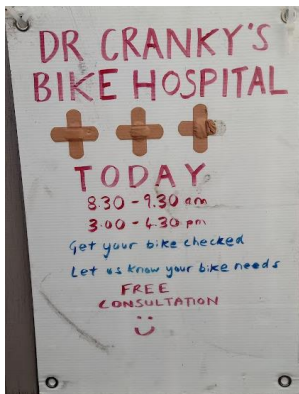 DR CRANKY'S
BIKE HOSPITAL
TODAY
8.30 - 9.30 am
3.00 - 4.30 pm
Get your bike checked
Let us know your bike needs
FREE
CONSULTATION